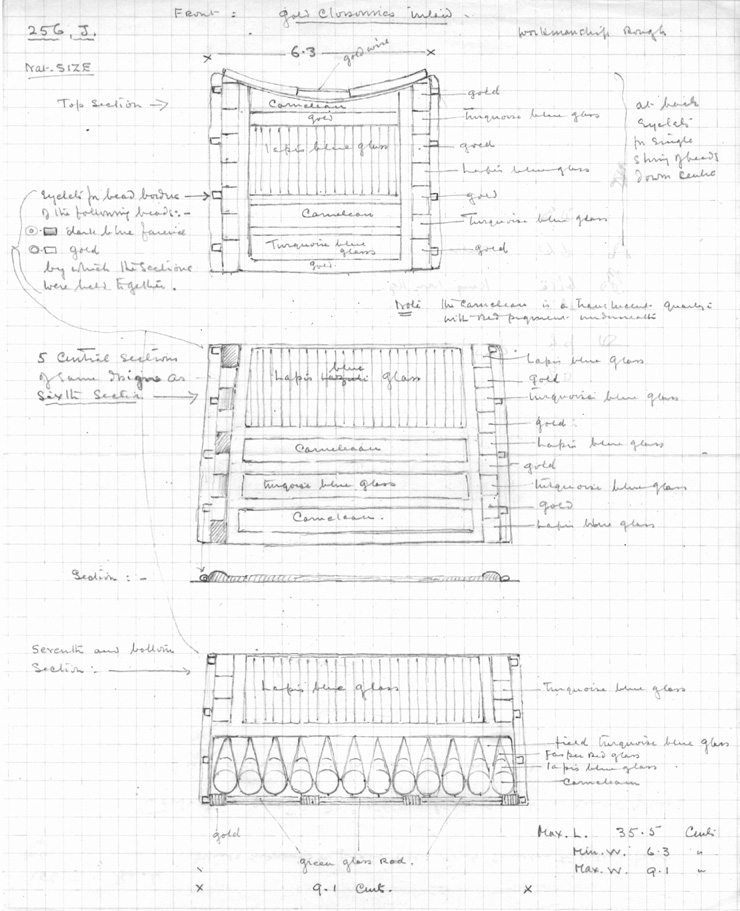 256, J.
Front : gold Cloisonnée inlaid.
Workmanship Rough
Nat. SIZE
6.3
gold wire
Top Section
Carneleän
gold
lapis blue glass
Carneleän
Turquoise blue glass
gold.
gold
Turquoise blue glass
gold
Lapis blue glass
gold
Turquoise blue glass
gold
at back
Eyelets
for single
string of beads
down centre
Eyelets for bead borders
of the following beads:-
dark blue faience
gold
by which the sections
were held together.
Note The Carneleän is a translucent quartz
with red pigment underneath
5 Central Sections
of same design as
Sixth Section
blue
Lapis glass
Carneleän
Turquoise blue glass
Carneleän.
Lapis blue glass
gold
Turquoise blue glass
gold.
Lapis blue glass
gold
Turquoise blue glass
gold
Lapis blue glass
Section : -
Seventh and bottom
Section :-
Lapis blue glass
Turquoise blue glass
field Turquoise blue glass
Jasper Red glass
lapis blue glass
Carneleän
gold
green glass Rod.
9.1 Cents.
Max. L. 35.5 Cents
Min. W. 6.3 "
Max. W. 9.1 "